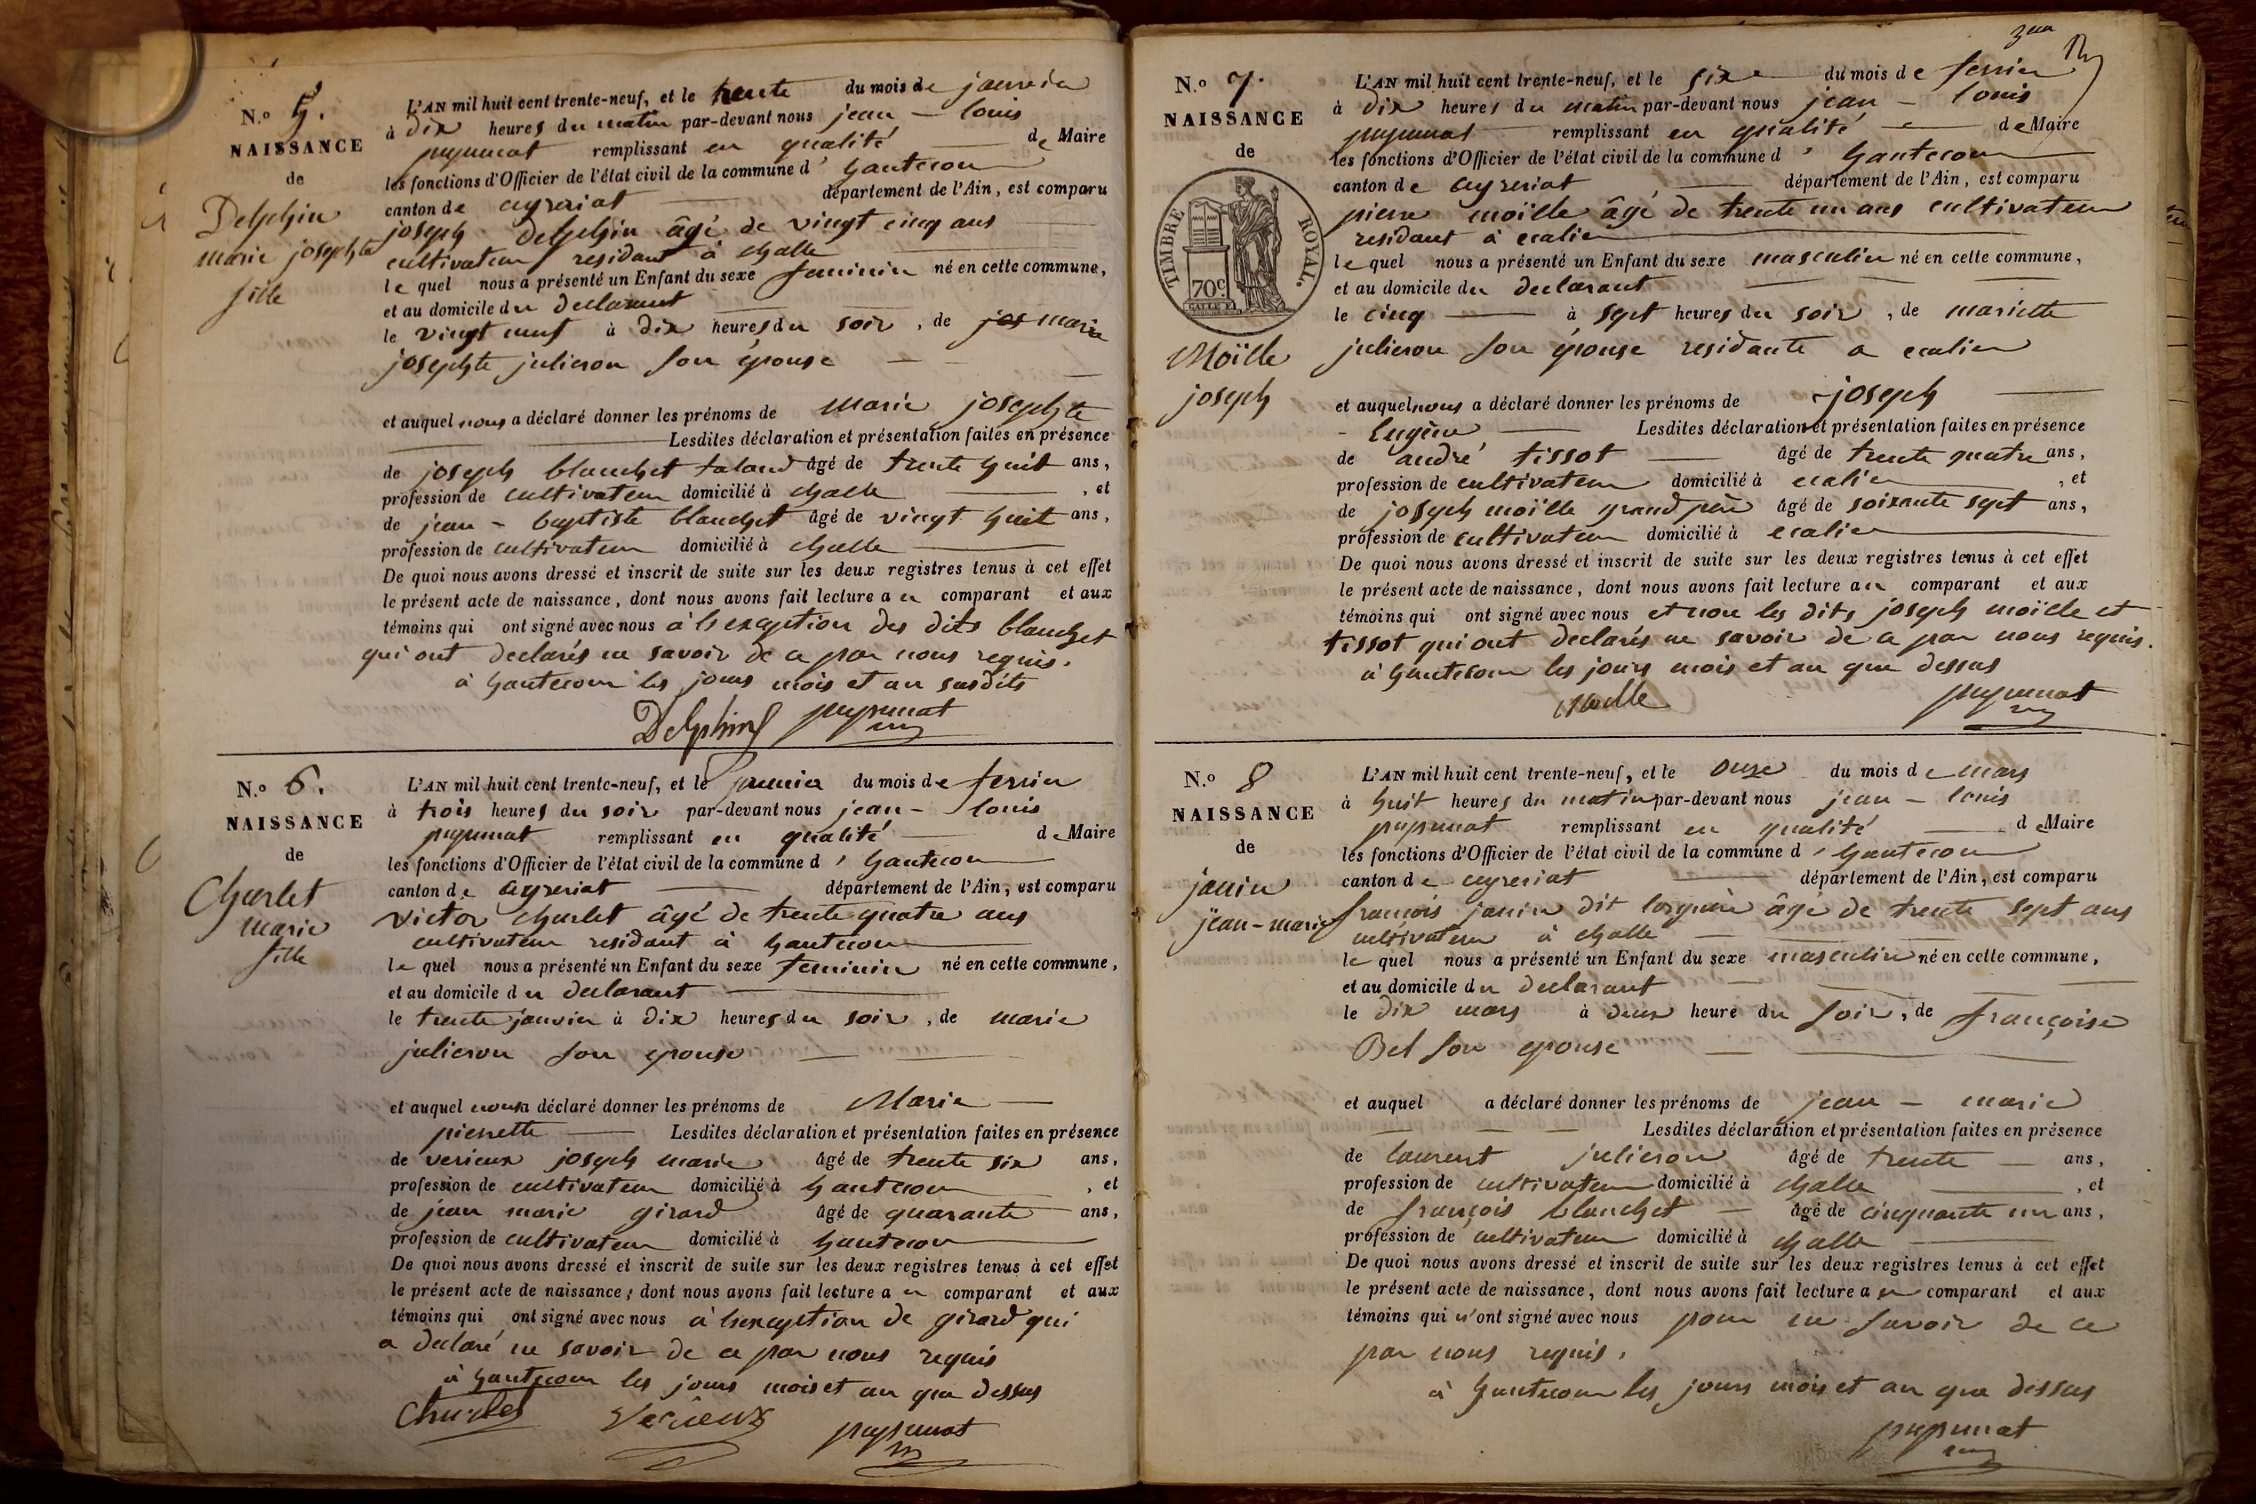 N.o 5.
NAISSANCE
de
Delphin
marie josephte
fille
L'AN mil huit cent trente-neuf, et le trente du mois de janvier
à dix heures du matin par-devant nous jean - louis
pupunat remplissant en qualité de Maire
les fonctions d'Officier de l'état civil de la commune d' hautecour
canton de ceyzeriat département de l'Ain, est comparu
joseph Delphin âgé de vingt cinq ans
cultivateur residant à challe
le quel nous a présenté un Enfant du sexe feminin né en cette commune,
et au domicile du declarant
le vingt neuf à dix heures du soir, de jos marie
josephte julieron son épouse
et auquel nous a déclaré donner les prénoms de marie josephte
Lesdites déclaration et présentation faites en présence
de joseph blanchet taland âgé de trente huit ans,
profession de cultivateur domicilié à challe, et
de jean - baptiste blanchet âgé de vingt huit ans,
profession de cultivateur domicilié à challe
De quoi nous avons dressé et inscrit de suite sur les deux registres tenus à cet effet
le présent acte de naissance, dont nous avons fait lecture au comparant et aux
témoins qui ont signé avec nous à l'exception des dits blanchet
qui ont declarés ne savoir de ce par nous requis.
à hautecour les jours mois et an susdits
Delphin pupunat
N.o 6.
NAISSANCE
de
Charlet
marie
fille
L'AN mil huit cent trente-neuf, et le premier du mois de fevrier
à trois heures du soir par-devant nous jean - louis
pupunat remplissant en qualité de Maire
les fonctions d'Officier de l'état civil de la commune d' hautecour
canton de ceyzeriat département de l'Ain, est comparu
victor charlet âgé de trente quatre ans
cultivateur residant à hautecour
le quel nous a présenté un Enfant du sexe feminin né en cette commune,
et au domicile du declarant
le trente janvier à dix heures du soir, de marie
julieron son epouse
et auquel nous a déclaré donner les prénoms de Marie
pierrette Lesdites déclaration et présentation faites en présence
de verieux joseph marie âgé de trente six ans,
profession de cultivateur domicilié à hautecour, et
de jean marie girard âgé de quarante ans,
profession de cultivateur domicilié à hautecour
De quoi nous avons dressé et inscrit de suite sur les deux registres tenus à cet effet
le présent acte de naissance, dont nous avons fait lecture au comparant et aux
témoins qui ont signé avec nous à l'exception de girard qui
a declaré ne savoir de ce par nous requis
à hautecour les jours mois et an que dessus
Charlet Verieux pupunat
N.o 7.
NAISSANCE
de
TIMBRE ROYAL.
70c.
Moïlle
joseph
L'AN mil huit cent trente-neuf, et le six du mois de fevrier
à dix heures du matin par-devant nous jean - louis
pupunat remplissant en qualité de Maire
les fonctions d'Officier de l'état civil de la commune d' hautecour
canton de ceyzeriat, département de l'Ain, est comparu
pierre moïlle âgé de trente un ans cultivateur
residant à
le quel nous a présenté un Enfant du sexe masculin né en cette commune,
et au domicile du declarant
le cinq à sept heures du soir, de mariette
julieron son épouse residante a
et auquel nous a déclaré donner les prénoms de joseph
- Eugène Lesdites déclaration et présentation faites en présence
de andré tissot âgé de trente quatre ans,
profession de cultivateur domicilié à, et
de joseph moïlle grand père âgé de soixante sept ans,
profession de cultivateur domicilié à
De quoi nous avons dressé et inscrit de suite sur les deux registres tenus à cet effet
le présent acte de naissance, dont nous avons fait lecture au comparant et aux
témoins qui ont signé avec nous et non les dits joseph moïlle et
tissot qui ont declarés ne savoir de ce par nous requis.
à hautecour les jours mois et an que dessus
Moille pupunat
N.o 8
NAISSANCE
de
janin
jean-marie
L'AN mil huit cent trente-neuf, et le onze du mois de mars
à huit heures du matin par-devant nous jean - louis
pupunat remplissant en qualité de Maire
les fonctions d'Officier de l'état civil de la commune d' hautecour
canton de ceyzeriat département de l'Ain, est comparu
françois janin dit âgé de trente sept ans
cultivateur à challe
le quel nous a présenté un Enfant du sexe masculin né en cette commune,
et au domicile du declarant
le dix mars à deux heure du soir, de françoise
Bel son epouse
et auquel a déclaré donner les prénoms de jean - marie
Lesdites déclaration et présentation faites en présence
de laurent julieron âgé de trente ans,
profession de cultivateur domicilié à challe, et
de françois blanchet âgé de cinquante un ans,
profession de cultivateur domicilié à challe
De quoi nous avons dressé et inscrit de suite sur les deux registres tenus à cet effet
le présent acte de naissance, dont nous avons fait lecture au comparant et aux
témoins qui n'ont signé avec nous pour ne savoir de ce
par nous requis.
à hautecour les jours mois et an que dessus
pupunat